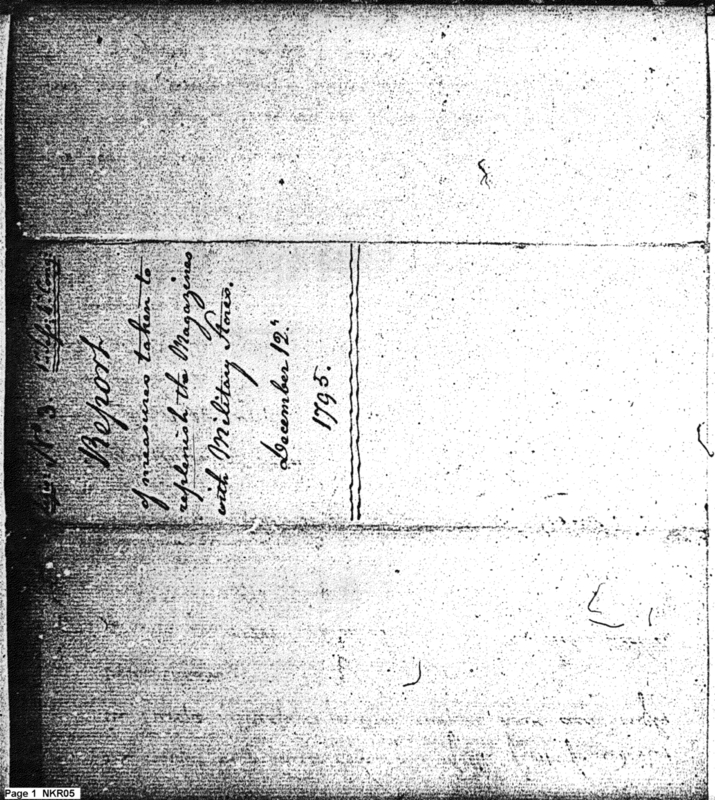 No. 3.
Report
of measures taken to
replenish the Magazines
with Military Stores.
December 12th
1795.
Page 1 NKR05